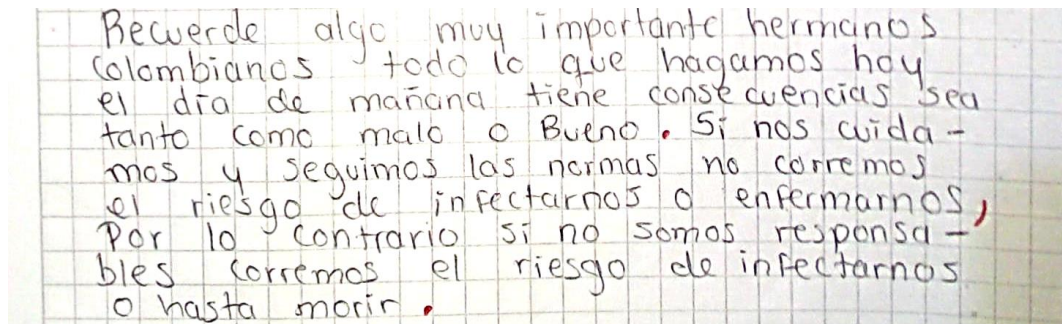 Recuerde algo muy importante hermanos
colombianos todo lo que hagamos hoy
el día de mañana tiene consecuencias sea
tanto como malo o Bueno. Si nos cuida-
mos y seguimos las normas no corremos
el riesgo de infectarnos o enfermarnos,
Por lo contrario si no somos responsa-
bles corremos el riesgo de infectarnos
o hasta morir.